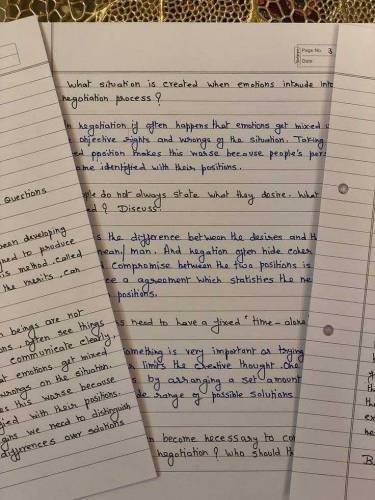 Page No. 3
Date
What situation is created when emotions intrude into
negotiation process?
negotiation it often happens that emotions get mixed
objective rights and wrongs of the situation. Taking
pposition makes this worse because people's pers
ome identified with their positions.
ple do not always state what they desire. What
ed? Discuss.
is the difference between the desires and th
mean/man. And negation often hide coher
compromise between the two positions is
ce a agreement which statisties the ne
positions.
s need to have a fixed "time-alone
something is very important as trying
r limits the creative thought. One
s by arranging a set amount
de range of possible solutions
n become necessary to con
negotiation? Who should th
Questions
been developing
ned to produce
is method, called
the merits, can
n beings are not
ns, often see things
communicate clearly,
at emotions get mixed
wrongs on the situation.
es this worse because
fied with their positions.
igns we need to distinguish
differences our solutions